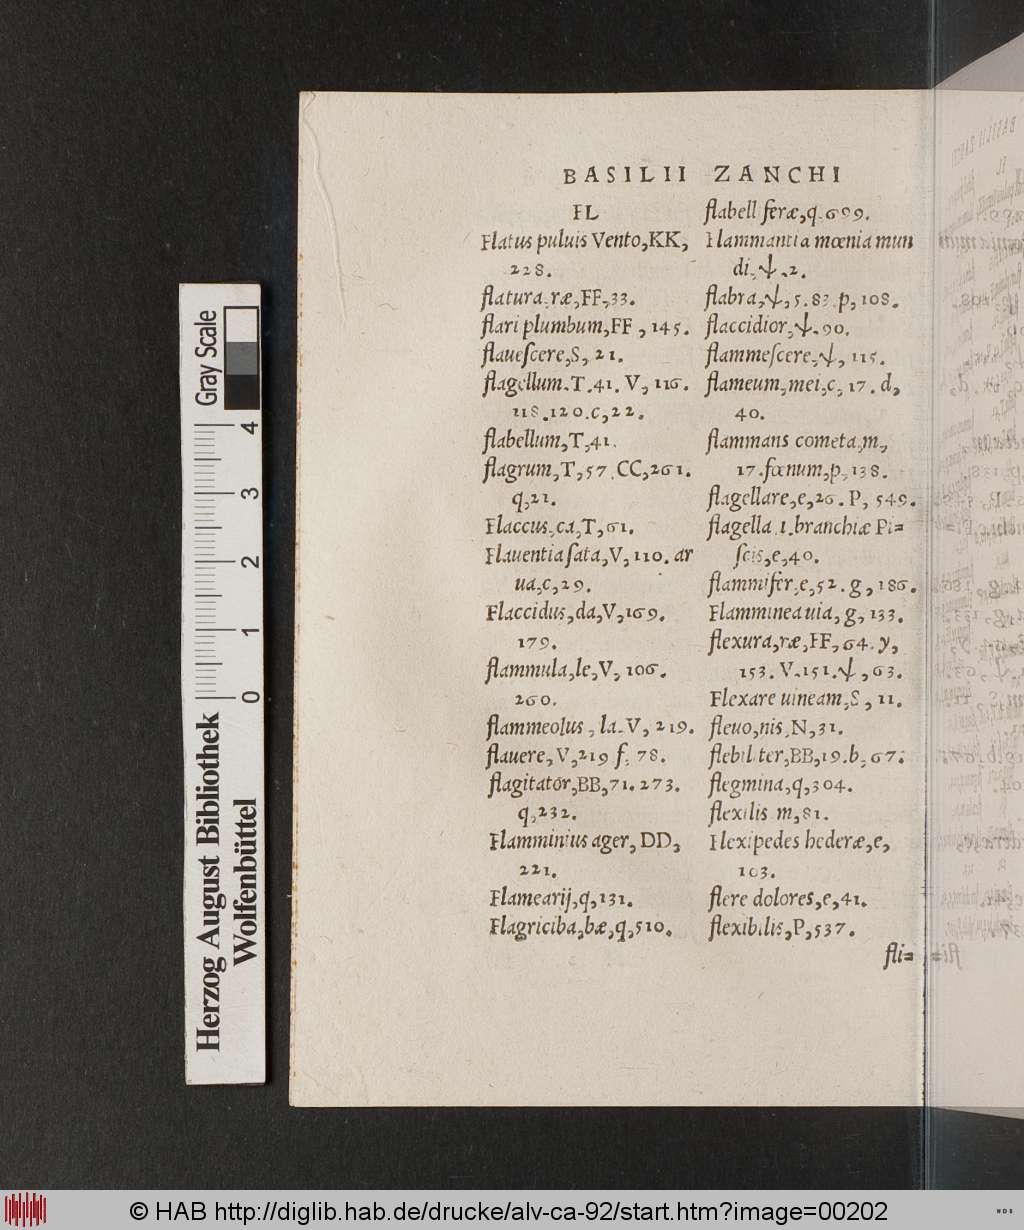 BASILII ZANCHI
FL
Flatus puluis Vento,KK,
228.
flatura,ræ,FF,33.
flari plumbum,FF, 145.
flaueſcere,S, 21.
flagellum.T.41. V, 116.
118.120.c,22.
flabellum,T,41.
flagrum,T,57.CC,261.
q,21.
Flaccus,ca,T,61.
Flauentia ſata,V,110. ar
ua,c,29.
Flaccidus,da,V,169.
179.
flammula,le,V, 106.
260.
flammeolus, la.V, 219.
flauere,V,219 f, 78.
flagitator,BB,71.273.
q,232.
Flamminius ager, DD,
221.
Flamearij,q,131.
Flagriciba,bæ,q,510.
flabell feræ,q.699.
Flammantia mœnia mun
di,ψ.2.
flabra,ψ,5.83.p,108.
flaccidior,ψ.90.
flammeſcere,ψ, 115.
flameum,mei,c, 17. d,
40.
flammans cometa,m,
17.fœnum,p,138.
flagellare,e,26. P, 549.
flagella .i.branchiæ Pi=
ſcis,e,40.
flammifer,e,52. g, 186.
Flamminea uia, g, 133.
flexura,ræ,FF,64. y,
153. V.151.ψ,63.
Flexare uineam,S, 11.
fleuo,nis,N,31.
flebiliter,BB,19.b,67.
flegmina,q,304.
flexilis m,81.
Flexipedes hederæ,e,
103.
flere dolores,e,41.
flexibilis,P,537.
fli=
Gray Scale
4
3
2
1
0
Herzog August Bibliothek
Wolfenbüttel
© HAB http://diglib.hab.de/drucke/alv-ca-92/start.htm?image=00202